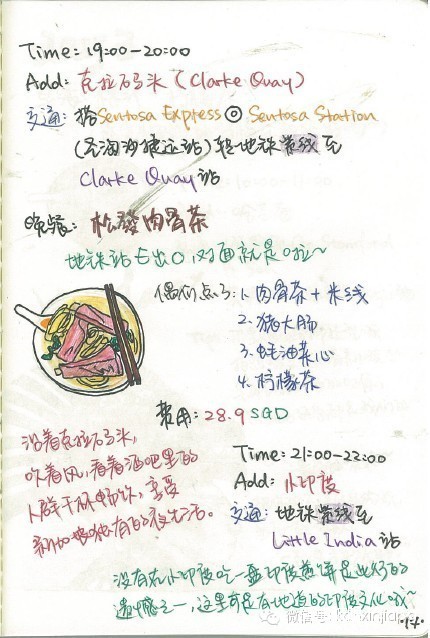 Time: 19:00-20:00
Add: 克拉码头 (Clarke Quay)
交通: 搭Sentosa Express@ Sentosa Station
(圣淘沙捷运站)转地铁紫线至
Clarke Quay站
晚餐: 松發肉骨茶
地铁站E出口,对面就是啦~
偶们点了: 1. 肉骨茶+米线
2. 猪大肠
3. 蚝油菜心
4. 柠檬茶
费用: 28.9 SGD
沿着克拉码头,
吹着风,看着酒吧里的
人群干杯畅饮,享受
新加坡独有的夜生活。
Time: 21:00-22:00
Add: 小印度
交通: 地铁紫线至
Little India站
没有在小印度吃一盘印度煎饼是此行的
遗憾之一,这里可是有地道的印度文化哦~
微信号: kc-xinjia
·14·